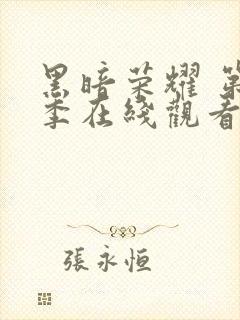 黑暗荣耀 第
季在线觀看
張永恒